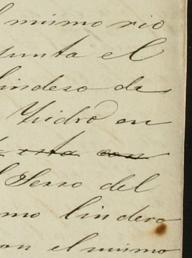 l mismo rio
junta el
lindero de
Ysidro en
esta con
l Serro del
mo lindero
on el mismo